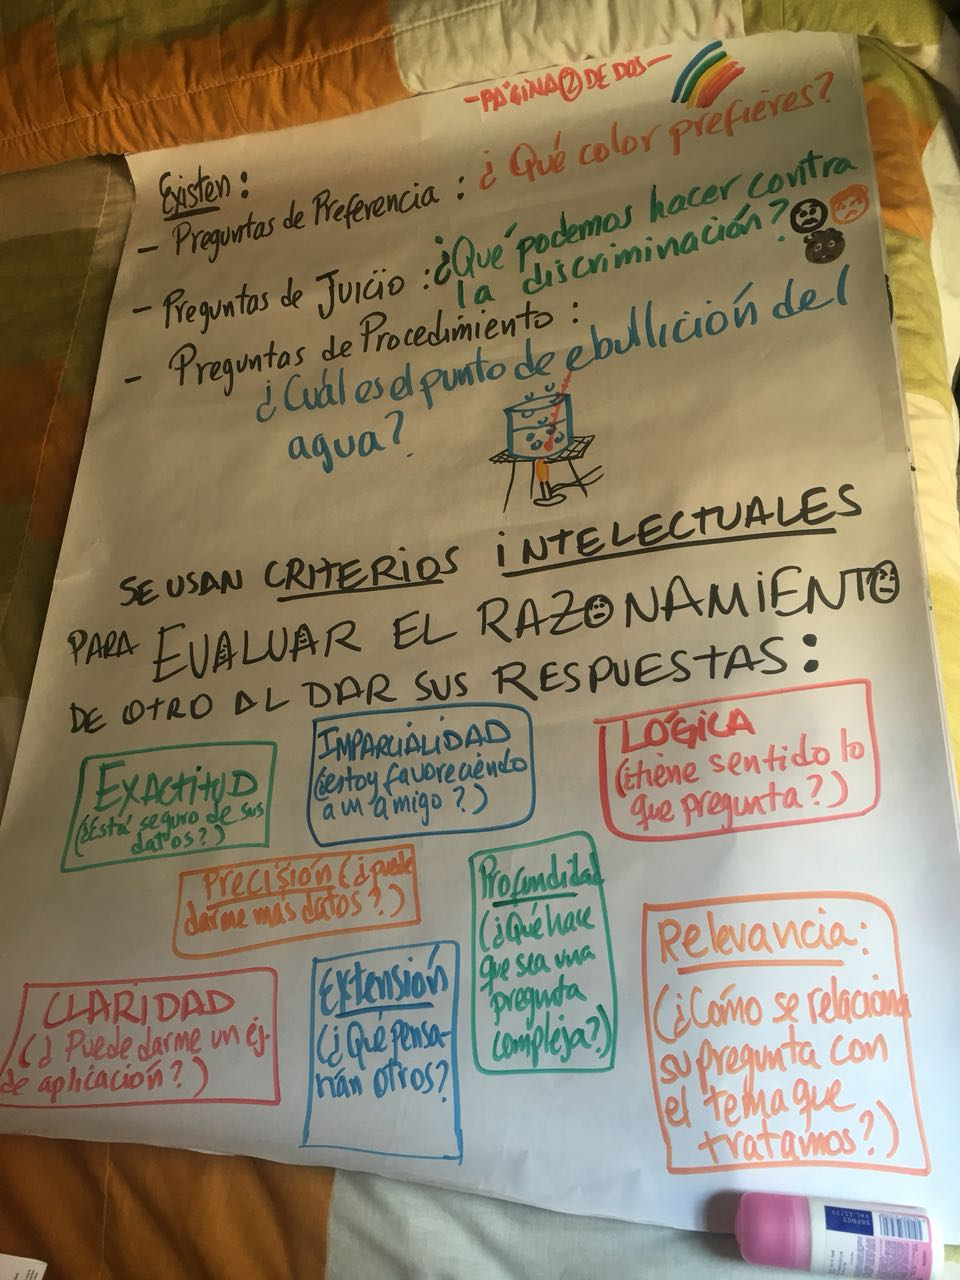 -PÁGINA 2 DE DOS-
Existen:
- Preguntas de Preferencia : ¿Qué color prefieres?
- Preguntas de Juicio : ¿Qué podemos hacer contra
la discriminación?
- Preguntas de Procedimiento :
¿Cuál es el punto de ebullición del
agua?
SE USAN CRITERIOS INTELECTUALES
PARA EVALUAR EL RAZONAMIENTO
DE OTRO AL DAR SUS RESPUESTAS:
EXACTITUD
(¿Está seguro de sus
datos?)
IMPARCIALIDAD
(¿estoy favoreciendo
a un amigo?)
LÓGICA
(¿tiene sentido lo
que pregunta?)
PRECISIÓN (¿puede
darme más datos?)
Profundidad
(¿Qué hace
que sea una
pregunta
compleja?)
Relevancia:
(¿Cómo se relaciona
su pregunta con
el tema que
tratamos?)
CLARIDAD
(¿Puede darme un ej.
de aplicación?)
Extensión
(¿Qué pensa-
rían otros?